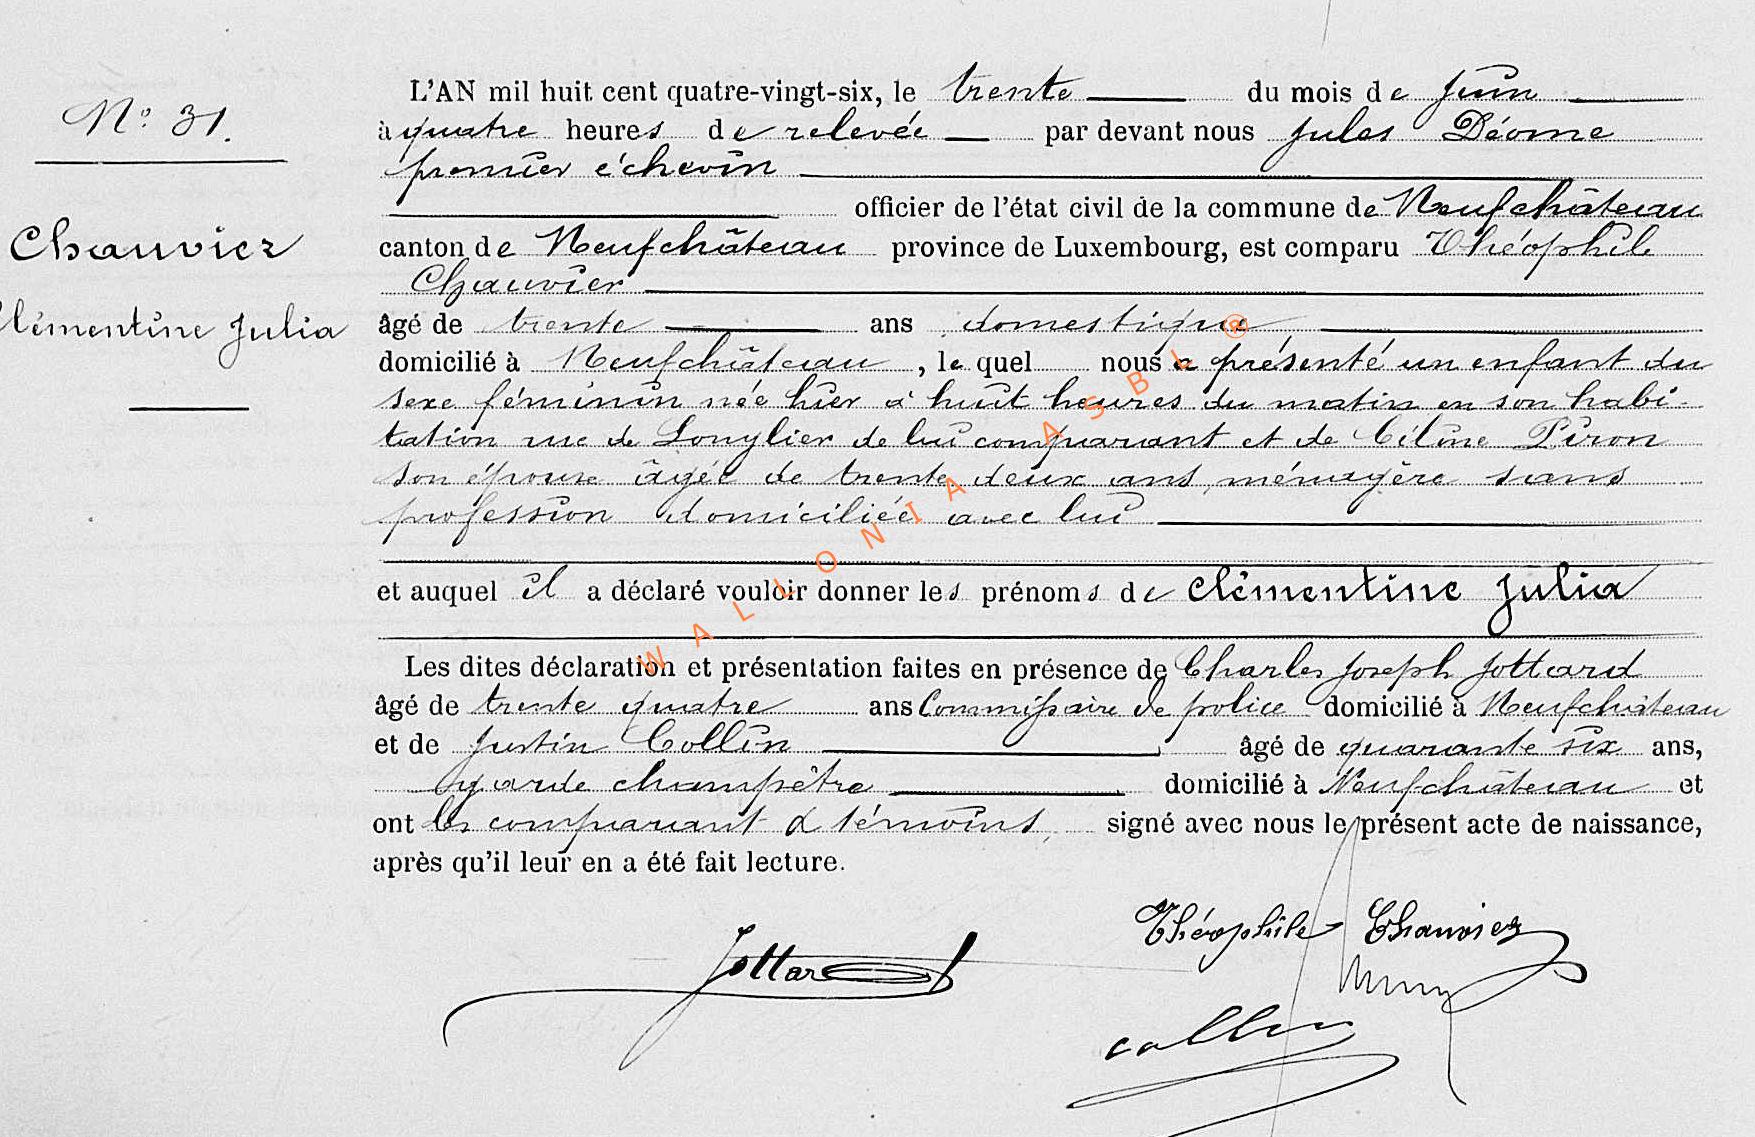 N° 31.
Chauvier
Clémentine Julia
L'AN mil huit cent quatre-vingt-six, le trente du mois de Juin
à quatre heures de relevée par devant nous Jules Déome
premier échevin
officier de l'état civil de la commune de Neufchâteau
canton de Neufchâteau province de Luxembourg, est comparu Théophile
Chauvier
âgé de trente ans domestique
domicilié à Neufchâteau, le quel nous a présenté un enfant du
sexe féminin née hier à huit heures du matin en son habi-
tation rue de Longlier de lui comparant et de Céline Piron
son épouse âgée de trente deux ans, ménagère sans
profession domiciliée avec lui
et auquel il a déclaré vouloir donner les prénoms de Clémentine Julia
Les dites déclaration et présentation faites en présence de Charles Joseph Jottard
âgé de trente quatre ans Commissaire de police domicilié à Neufchâteau
et de Justin Collin âgé de quarante six ans,
garde champêtre domicilié à Neufchâteau et
ont les comparant & témoins, signé avec nous le présent acte de naissance,
après qu'il leur en a été fait lecture.
Théophile Chauvier
Jottard
Collin
WALLONIA ASBL ®